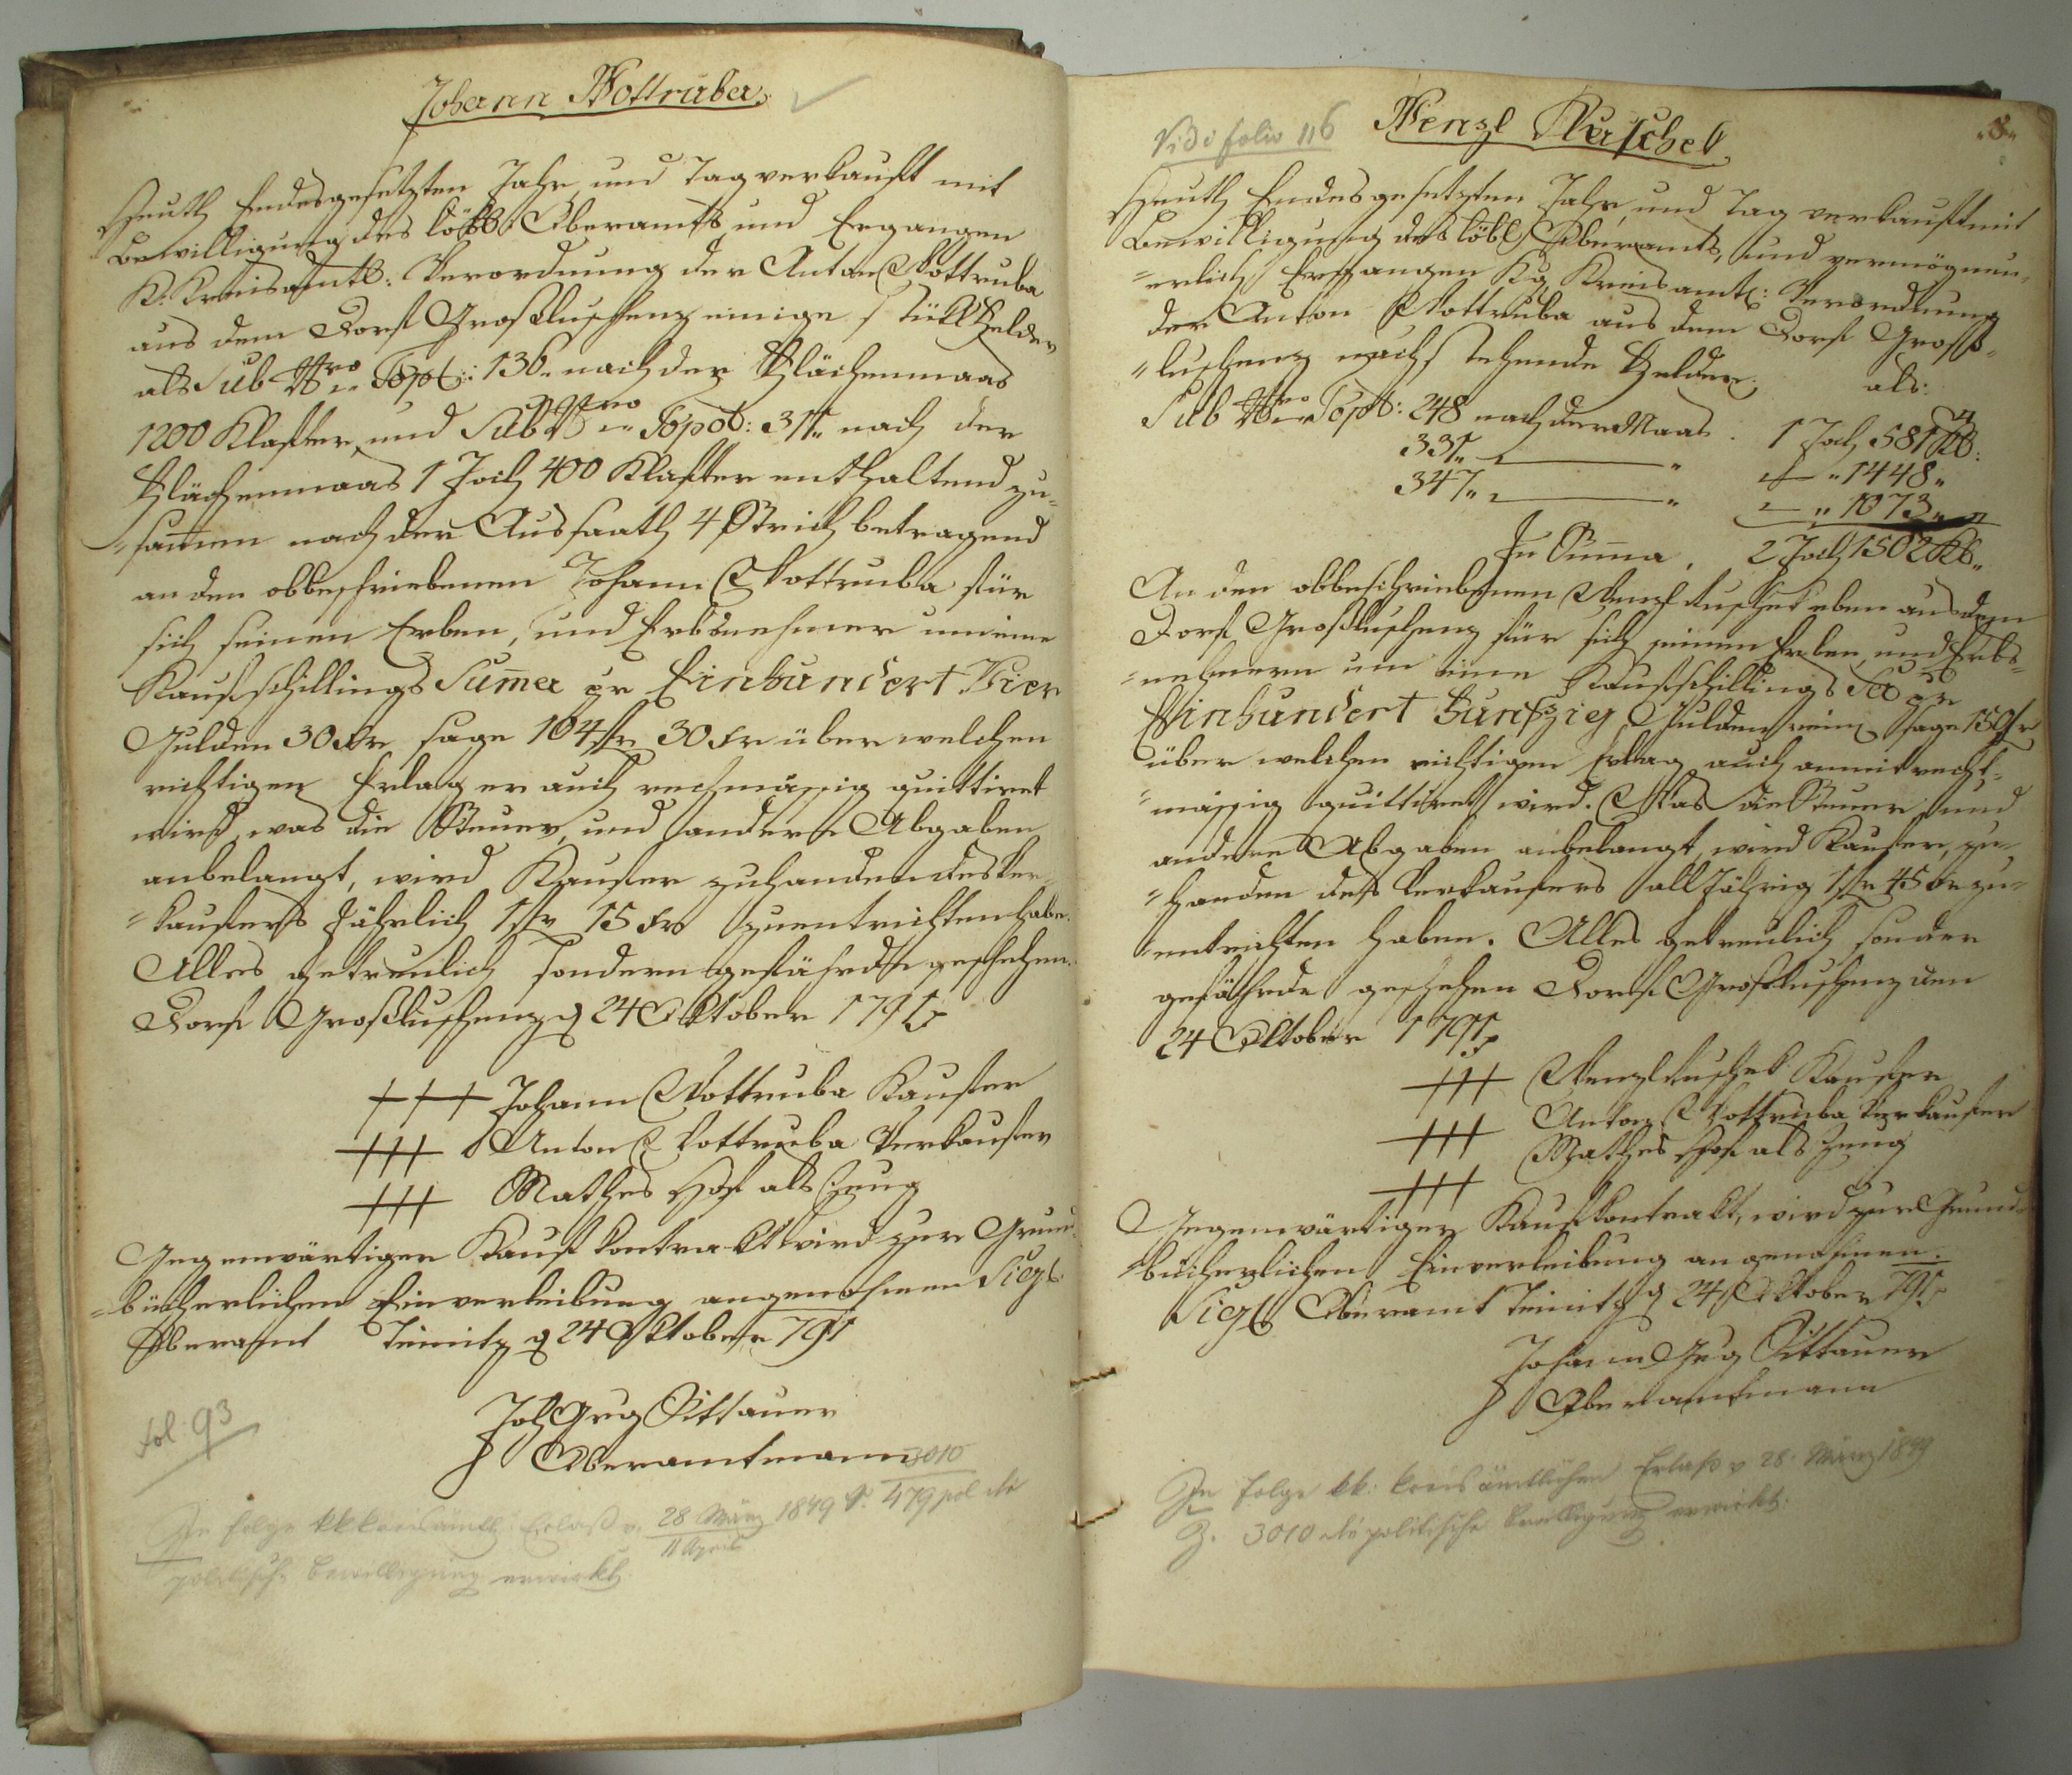 Johann Wottruba
Heuth Endesgesetzten Jahr, und Tag verkauft mit
Bewilligung des löbl. Oberamts und Ergangen
K. Kreisamtl: Verordnung der Anton Wottruba
aus dem Dorf Großluschenz einige stükl Felder
als Sub Nro Top: 136 nach der Flächenmaas
1200 Klafter, und Sub Nro Top: 311 nach der
Flächenmaas 1 Joch 400 Klafter enthaltend zu-
-sam̄en nach der Aussaath 4 Strich betragend
an den obbeschriebenen Johann Wottruba für
sich seinen Erben, und Erbsnehmer um eine
Kaufschillings Sum̄a pr Einhundert Vier
Gulden 30 Xr sage 104 fr 30 Xr über welchen
richtigen Erlag er auch rechmässig quittiret
wird, was die Steuer, und andere Abgaben
anbelangt, wird Kaufer zuhanden des Ver-
-kaufers Jährlich 1 fr 15 Xr zuentrichten habe.
Alles getreulich sondern gefährde geschehen.
Dorf Großluschenz d 24 Oktober 1791
+++ Johann Wottruba Kaufer
+++ Anton Wottruba Verkaufer
+++ Mathes Hof als Zeug
Gegenwärtiger Kauf kontrakt wird zur Grund-
-bücherlichen Einverleibung angenohmen Sigl.
Oberamt Teinitz d 24 Oktober 791
Joh Geg Sittauer
Oberamtmann
fol 93
3010
In folge kk kreisämtl. Erlaß v. 28 März 1849 N. 479 pol die
11 April
politische Bewilligung erwirkt.
Vidi folio 116
Wenzl Duschek
8
Heuth Endesgesetzten Jahr, und Tag verkauft mit
Bewilligung des löbl. Oberamts, und vermög neu-
-erlich Ergangen Kg Kreisamtl: Verordnung
der Anton Wottruba aus dem Dorf Groß-
-luschenz nachstehende Felder als:
Sub Nro Top: 248 nach der Maas 1 Joch 581 Kl.
331 " — " 1448 "
347 " — " 1073 "
In Sum̄a, 2 Joch 1502 Kl.
An den obbeschriebenen Wenzl Duschek eben aus dem
Dorf Großluschenz für sich seinen Erben, und Erbs-
-nehmern um eine Kaufschillings Sa pr
Einhundert Funfzig Gulden rein sage 150 fr
über welchen richtigen Erlag auch anmit recht-
-mässig quittiret wird. Was die Steuer und
andere Abgaben anbelangt, wird Kaufer, zu-
-handen des Verkaufers all Jährig 1 fr 45 Xr zu-
-entrichten haben. Alles getreulich sonder
gefährde geschehen Dorf Großluschenz den
24 Oktober 1791
+++ Wenzl Duschek Kaufer
+++ Anton Wottruba Verkaufer
+++ Mathes Hof als Zeug
Gegenwärtiger Kaufkontrakt, wird zur Grund-
-bücherlichen Einverleibung angenohmen.
Sigl Oberamt Teinitz d 24 Oktober 791
Johann Geg Sittauer
Oberamtmann
In folge kk: kreisämtlichen Erlaß v 28. März 1849
Z. 3010 die politische Bewilligung erwirkt.